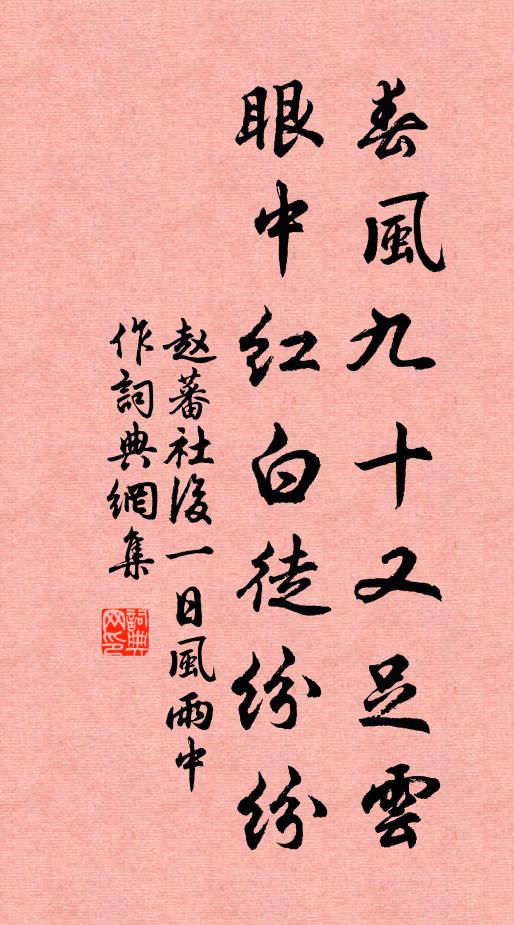 春風九十又足雲
眼中红白徒紛紛
赵蕃社後一日風雨中
作詞典網集
詞典網印